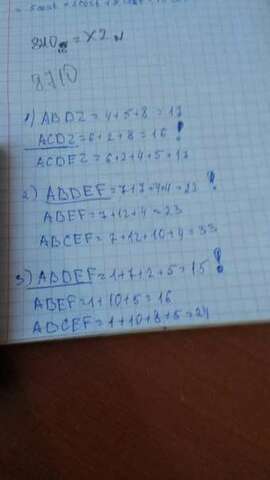 1) ABDZ = 4+5+8 = 17
ACDZ = 6+2+8 = 16 !
ACDEZ = 6+2+4+5 = 17
2) ABDEF = 7+7+4+4 = 22 !
ABEF = 7+12+4 = 23
ABCEF = 7+12+10+4 = 33
3) ABDEF = 1+7+2+5 = 15 !
ABEF = 1+10+5 = 16
ABCEF = 1+10+8+5 = 24